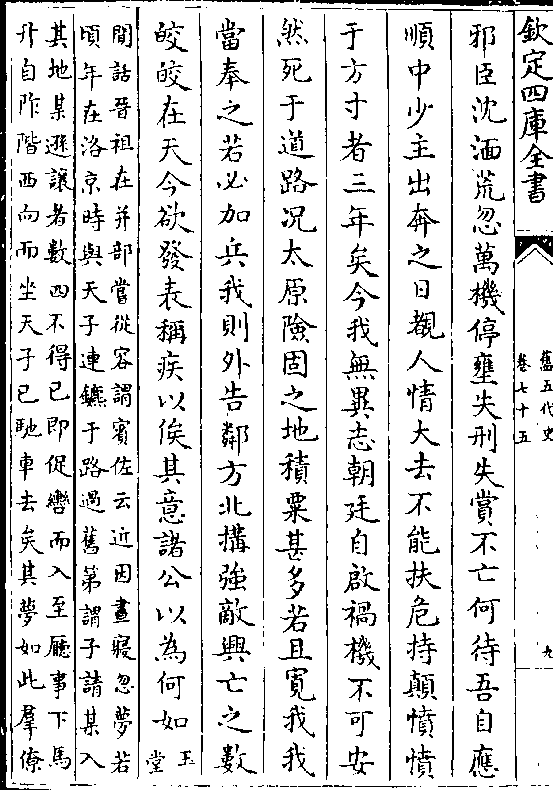 欽定四庫全書
舊五代史
卷七十五
九
邪臣沈湎荒忽萬機停壅失刑失賞不亡何待吾自應
順中少主出奔之日觀人情大去不能扶危持顛憤憤
于方寸者三年矣今我無異志朝廷自啟禍機不可安
然死于道路况太原險固之地積粟甚多若且寬我我
當奉之若必加兵我則外告鄰方北搆強敵興亡之數
皎皎在天今欲發表稱疾以俟其意諸公以為何如
玉
堂
閒話晉祖在并部嘗從容謂賓佐云近因晝寢忽夢若
頃年在洛京時與天子連鑣于路過舊第謂予請某入
其地某遜讓者數四不得已即促轡而入至廳事下馬
升自阼階西向而坐天子已馳車去矣其夢如此羣僚